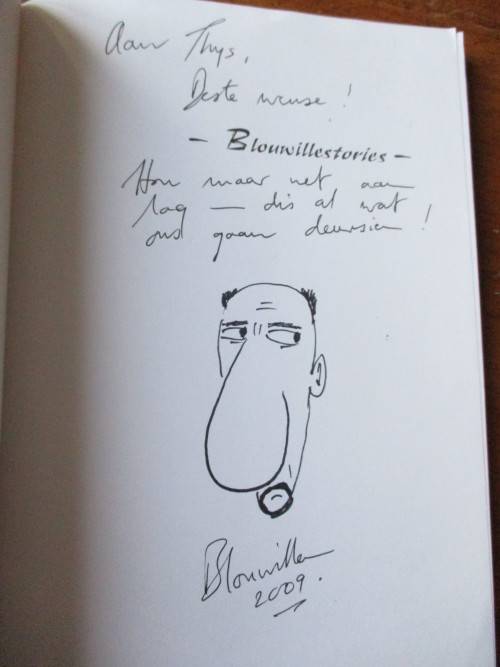 Aan Thys,
Beste wense!
– Blouwillestories –
Hou maar net aan
lag – dis al wat
ons gaan deursien!
Blouwillem
2009.